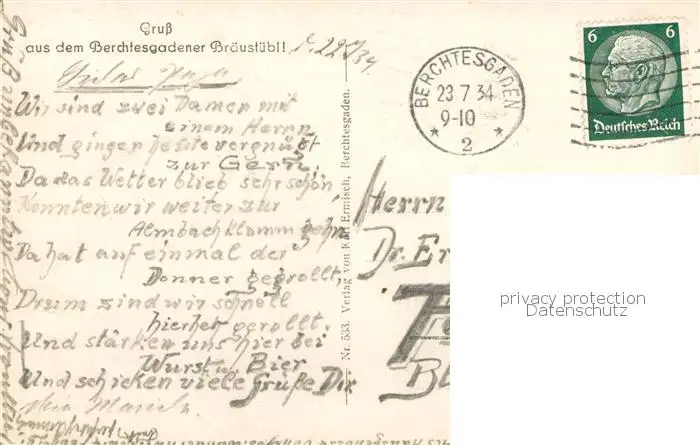 Gruß
aus dem Berchtesgadener Bräustübl!
22.7.34
Wir sind zwei Damen mit
einem Herrn
Und gingen heute vergnügt
zur Gern,
Da das Wetter blieb sehr schön
Konnten wir weiter zur
Almbachklamm gehn
Da hat auf einmal der
Donner gegrollt,
Drum sind wir schnell
hierher gerollt.
Und stärken uns hier bei
Wurst u. Bier
Und schicken viele Grüße Dir
Nr. 533. Verlag von Karl Ermisch, Berchtesgaden.
BERCHTESGADEN
23 7 34
9-10
2
6 6
Deutsches Reich
Herrn
Dr. Er
privacy protection
Datenschutz